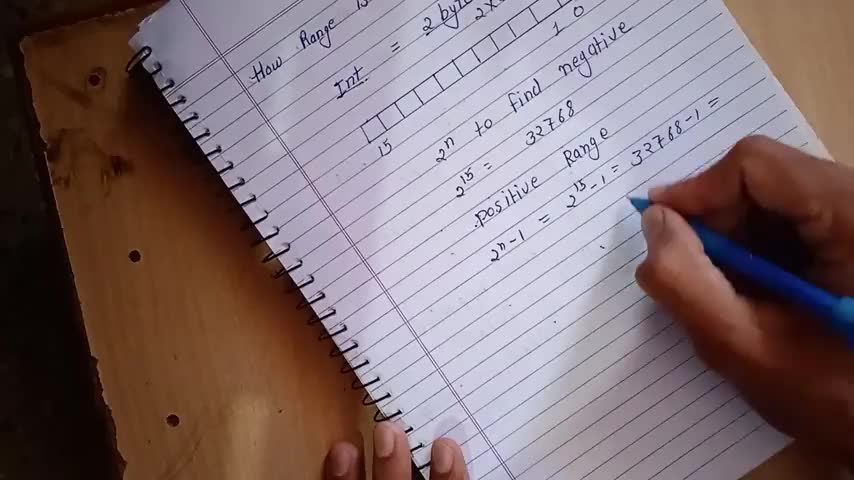 How Range is
Int. = 2 byte
2x
15 1 0
2^n to find negative
2^15 = 32768
positive Range
2^n-1 = 2^15-1 = 32768-1 =